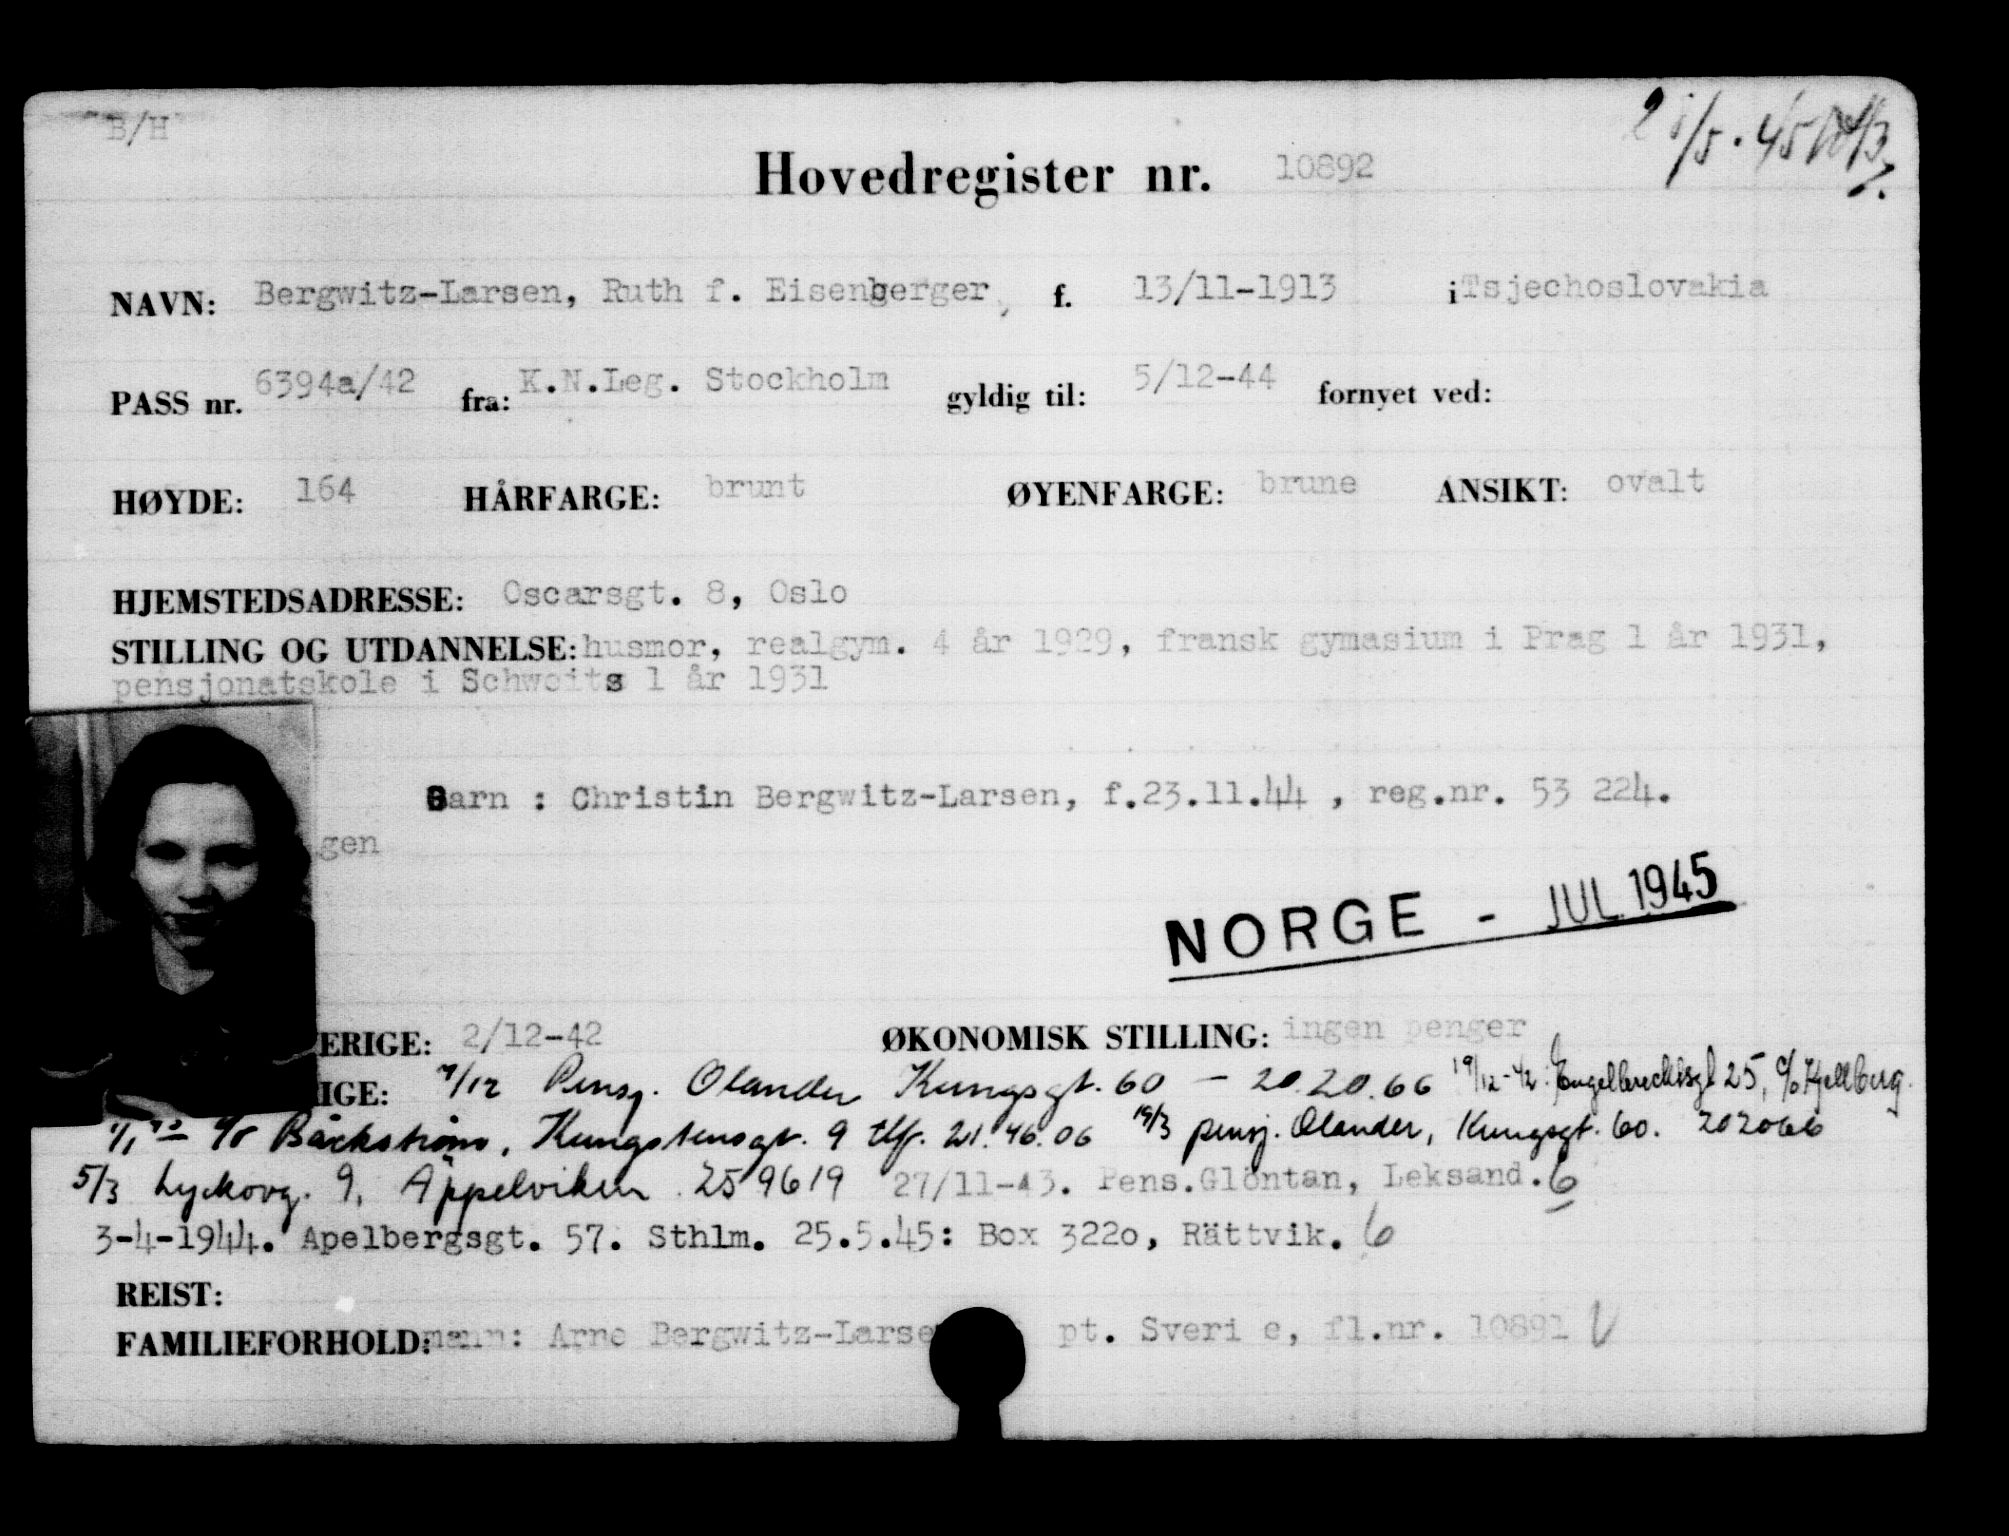 B/H
21/5.45
Hovedregister nr. 10892
NAVN: Bergwitz-Larsen, Ruth f. Eisenberger, f. 13/11-1913 i Tsjechoslovakia
PASS nr. 6394a/42 fra: K.N.Leg. Stockholm gyldig til: 5/12-44 fornyet ved:
HØYDE: 164 HÅRFARGE: brunt ØYENFARGE: brune ANSIKT: ovalt
HJEMSTEDSADRESSE: Oscarsgt. 8, Oslo
STILLING OG UTDANNELSE: husmor, realgym. 4 år 1929, fransk gymasium i Prag 1 år 1931,
pensjonatskole i Schweits 1 år 1931
Barn : Christin Bergwitz-Larsen, f.23.11.44 , reg.nr. 53 224.
gen
NORGE - JUL 1945
ERIGE: 2/12-42 ØKONOMISK STILLING: ingen penger
IGE: Pensj. Olander Kungsgt. 60 - 20.20.66 19/12-42: Engelbrechtsgt 25, c/o Kjellberg.
c/o Bäckström, Kungstensgt. 9 tlf. 21.46.06 19/3 pensj. Olander, Kungsgt. 60. 202066
5/3 Lyckovg. 9, Äppelviken 259619 27/11-43. Pens.Glöntan, Leksand. 6
3-4-1944. Apelbergsgt. 57. Sthlm. 25.5.45: Box 322o, Rättvik. 6
REIST:
FAMILIEFORHOLD: mann: Arne Bergwitz-Larse pt. Sveri e, fl.nr. 10891 V